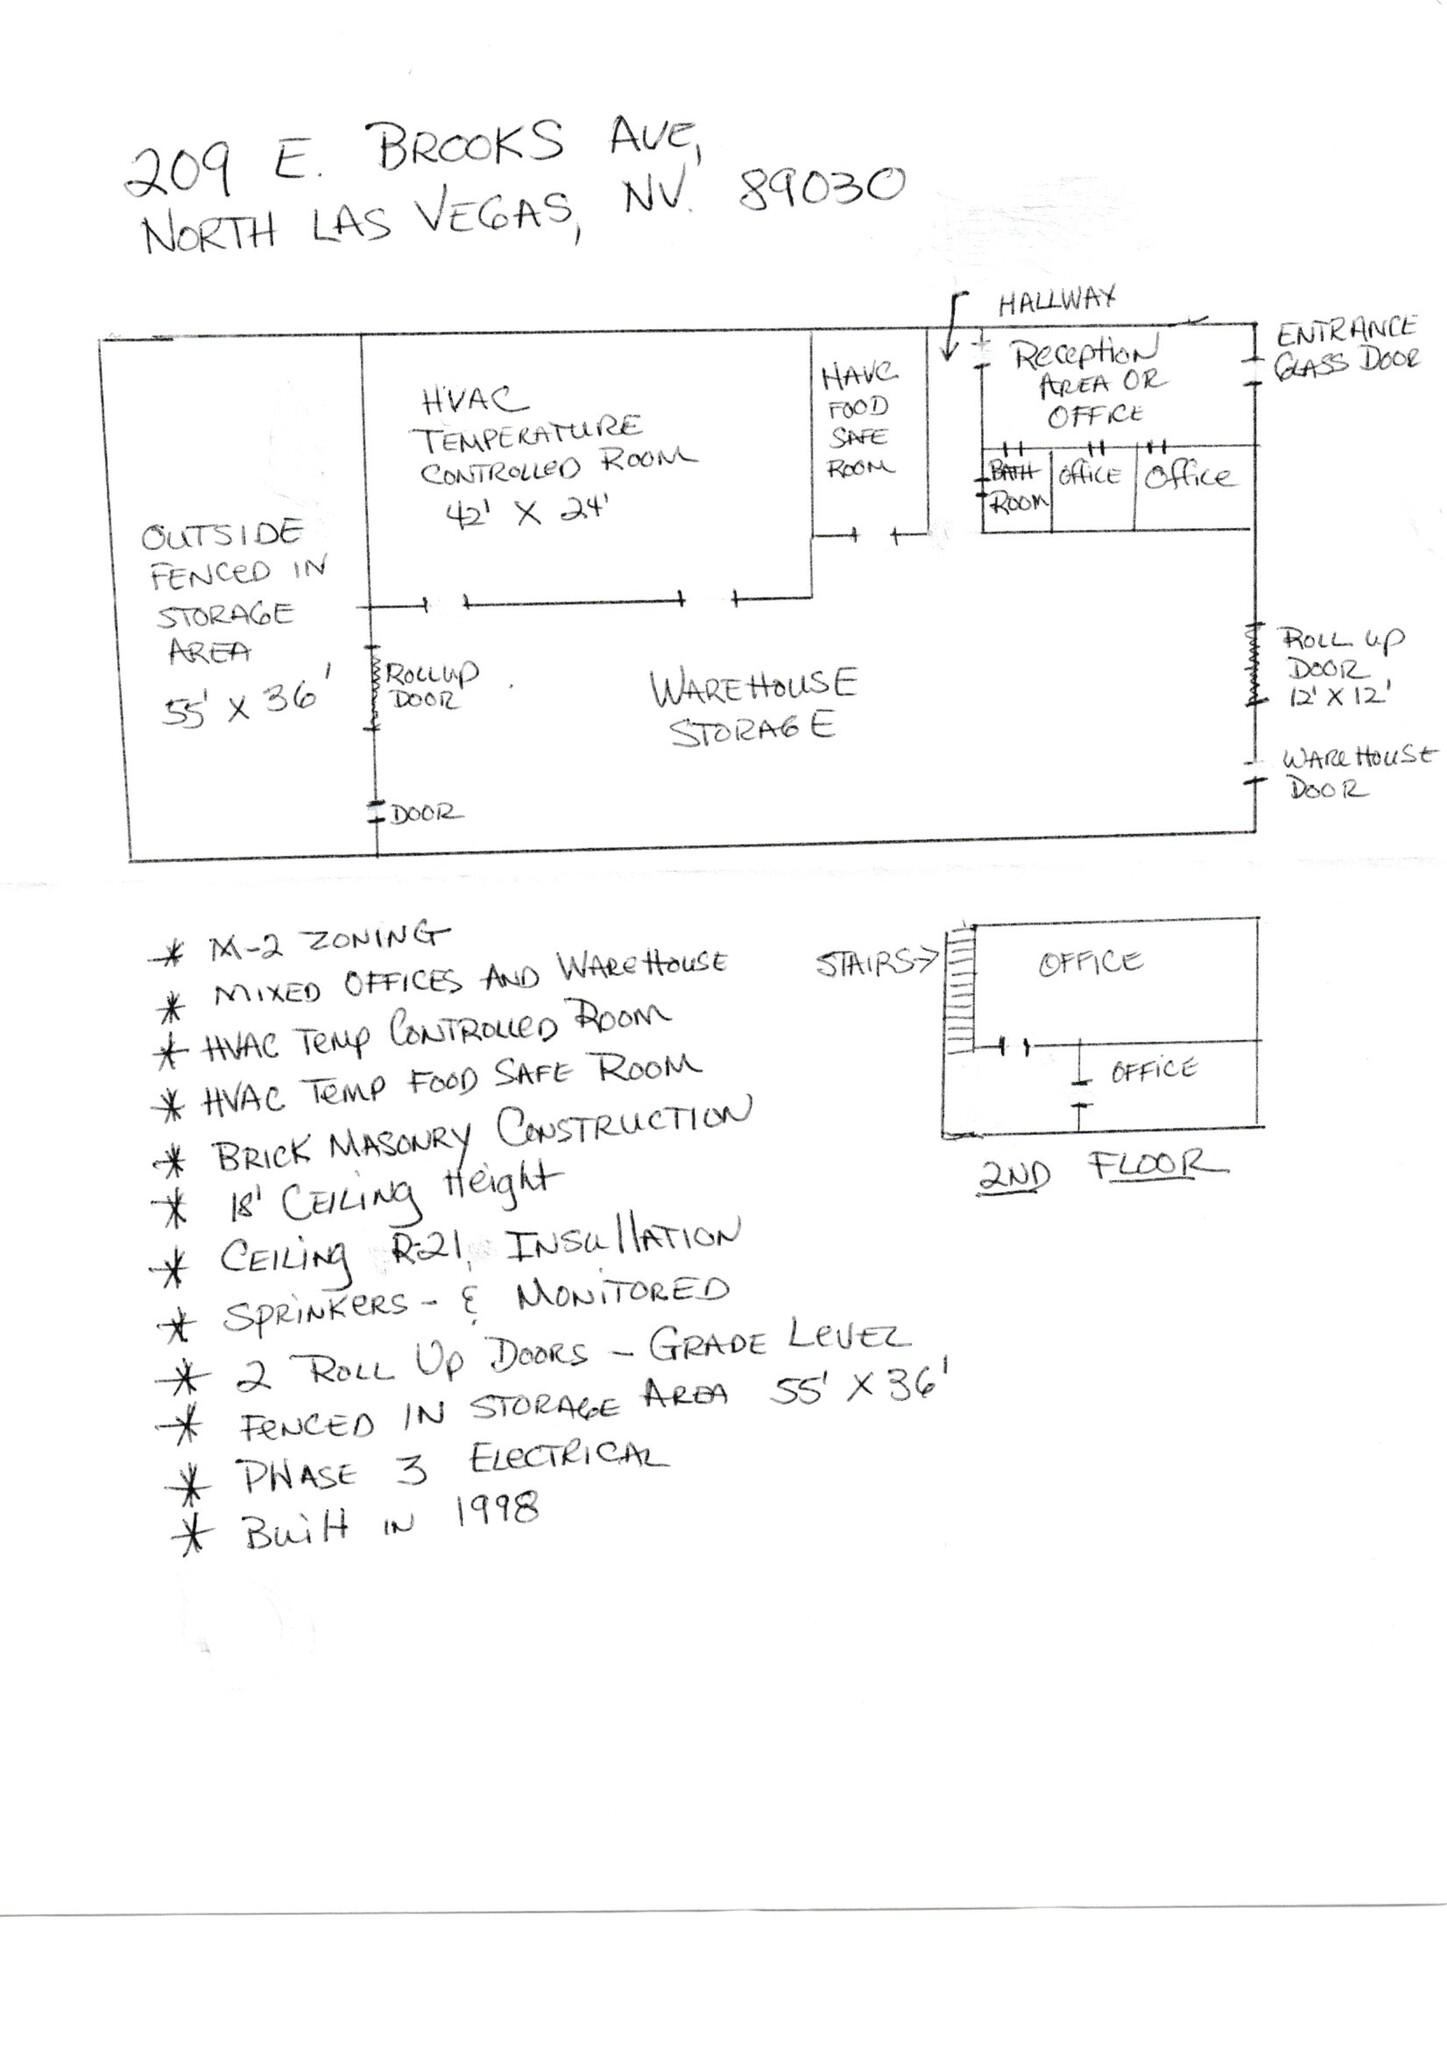 209 E. BROOKS AVE,
NORTH LAS VEGAS, NV. 89030
HALLWAY
ENTRANCE
GLASS DOOR
Reception
AREA OR
OFFICE
HAVC
FOOD
SAFE
ROOM
HVAC
TEMPERATURE
CONTROLLED ROOM
42' X 24'
BATH
ROOM
OFFICE
Office
OUTSIDE
FENCED IN
STORAGE
AREA
55' X 36'
ROLLUP
DOOR
WAREHOUSE
STORAGE
ROLL UP
DOOR
12' X 12'
WAREHOUSE
DOOR
DOOR
* M-2 ZONING
* MIXED OFFICES AND WAREHOUSE
* HVAC TEMP CONTROLLED ROOM
* HVAC TEMP FOOD SAFE ROOM
* BRICK MASONRY CONSTRUCTION
* 18' CEILING Height
* CEILING R-21, INSULLATION
* SPRINKERS - & MONITORED
* 2 ROLL UP DOORS - GRADE LEVEL
* FENCED IN STORAGE AREA 55' X 36'
* PHASE 3 ELECTRICAL
* Built IN 1998
STAIRS→
OFFICE
OFFICE
2ND FLOOR